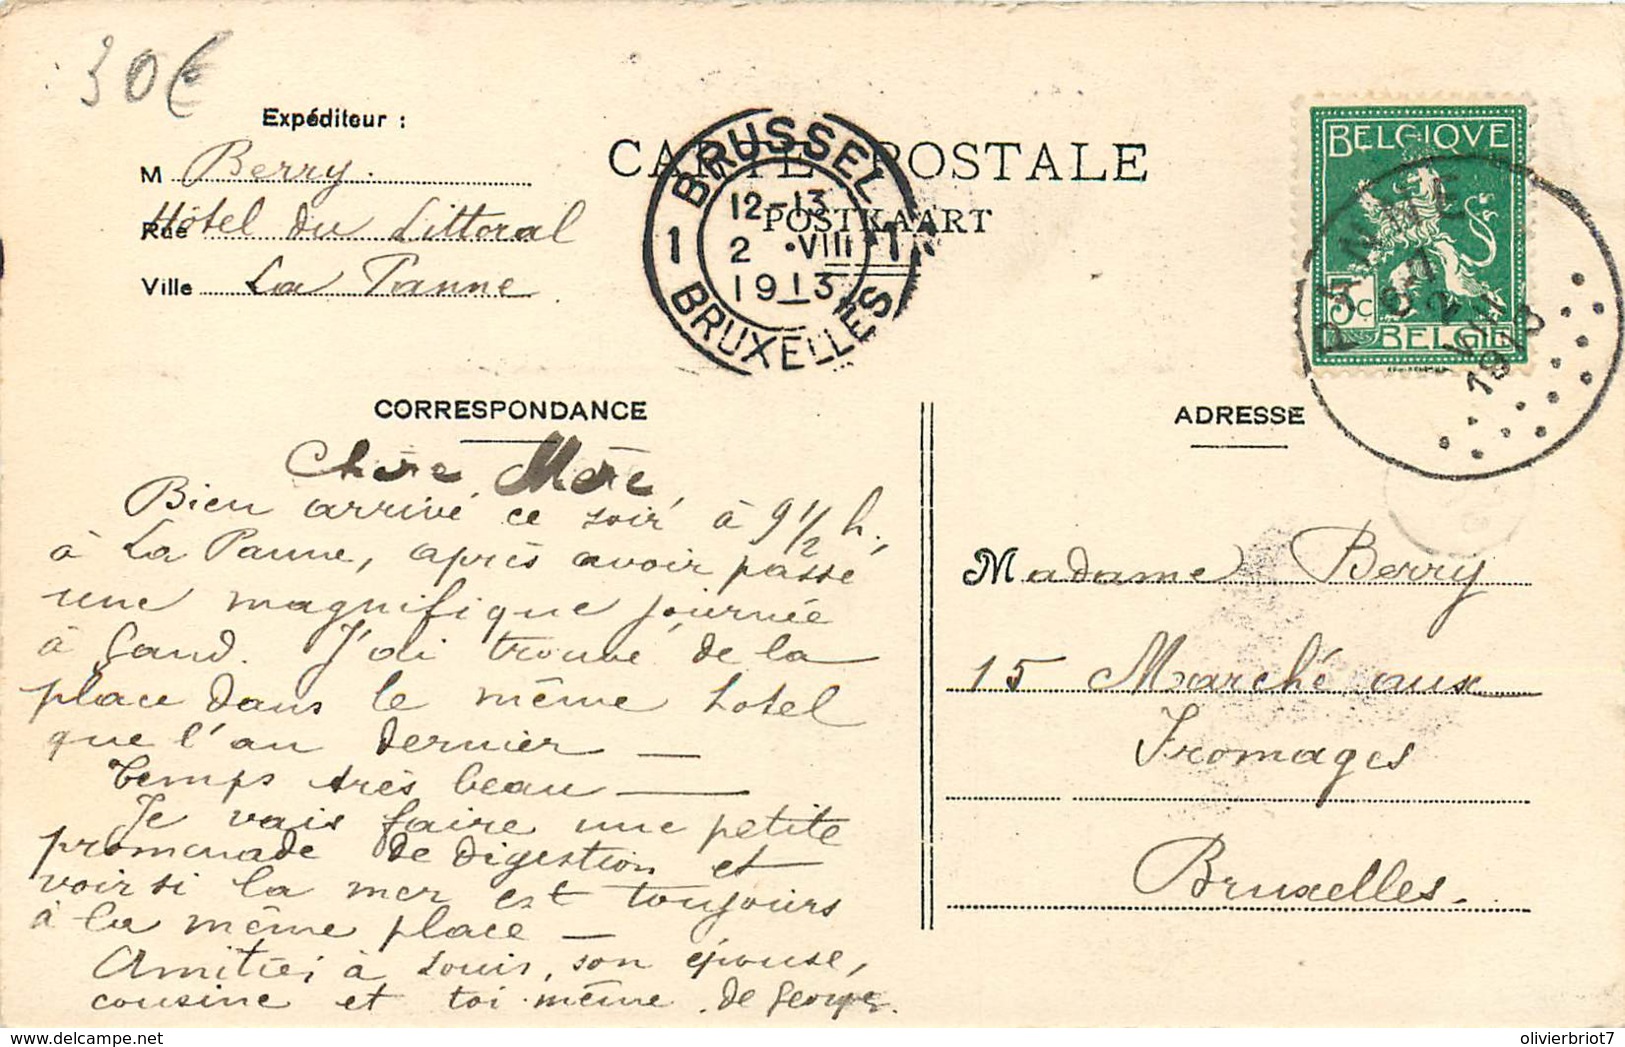 30€
Expéditeur :
M Berry.
Rue Hôtel du Littoral
Ville La Panne
CARTE POSTALE
POSTKAART
BRUSSEL
1 12-13 1
2 •VIII
1913
BRUXELLES
BELGIQVE
5c
BELGIE
PANNE
2
VIII
1913
CORRESPONDANCE
Chère Mère
Bien arrivé ce soir à 9 1/2 h,
à La Panne, après avoir passé
une magnifique journée
à Gand. J'ai trouvé de la
place dans le même hotel
que l'an dernier —
Temps très beau —
Je vais faire une petite
promenade de digestion et
voir si la mer est toujours
à la même place —
Amitiés à Louis, son épouse,
cousine et toi-même de George.
ADRESSE
Madame Berry
15 Marché aux
Fromages
Bruxelles.
olivierbriot7